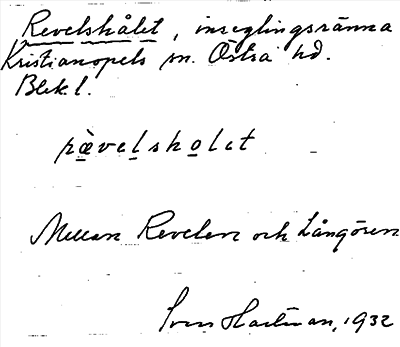 Revelshålet, inseglingsränna
Kristianopels sn. Östra hd.
Blek l.
rävelsholet
Mellan Revelen och Långören
Sven Hartman, 1932